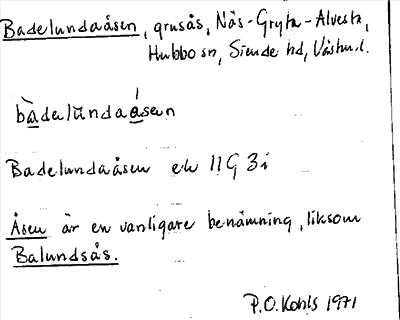 Badelundaåsen, grusås, Näs-Gryta-Alvesta,
Hubbo sn, Siende hd, Västml.
bàdelūndaåsen
Badelundaåsen ek 11G 3i
Åsen är en vanligare benämning, liksom
Balundsås.
P.O. Kohls 1971